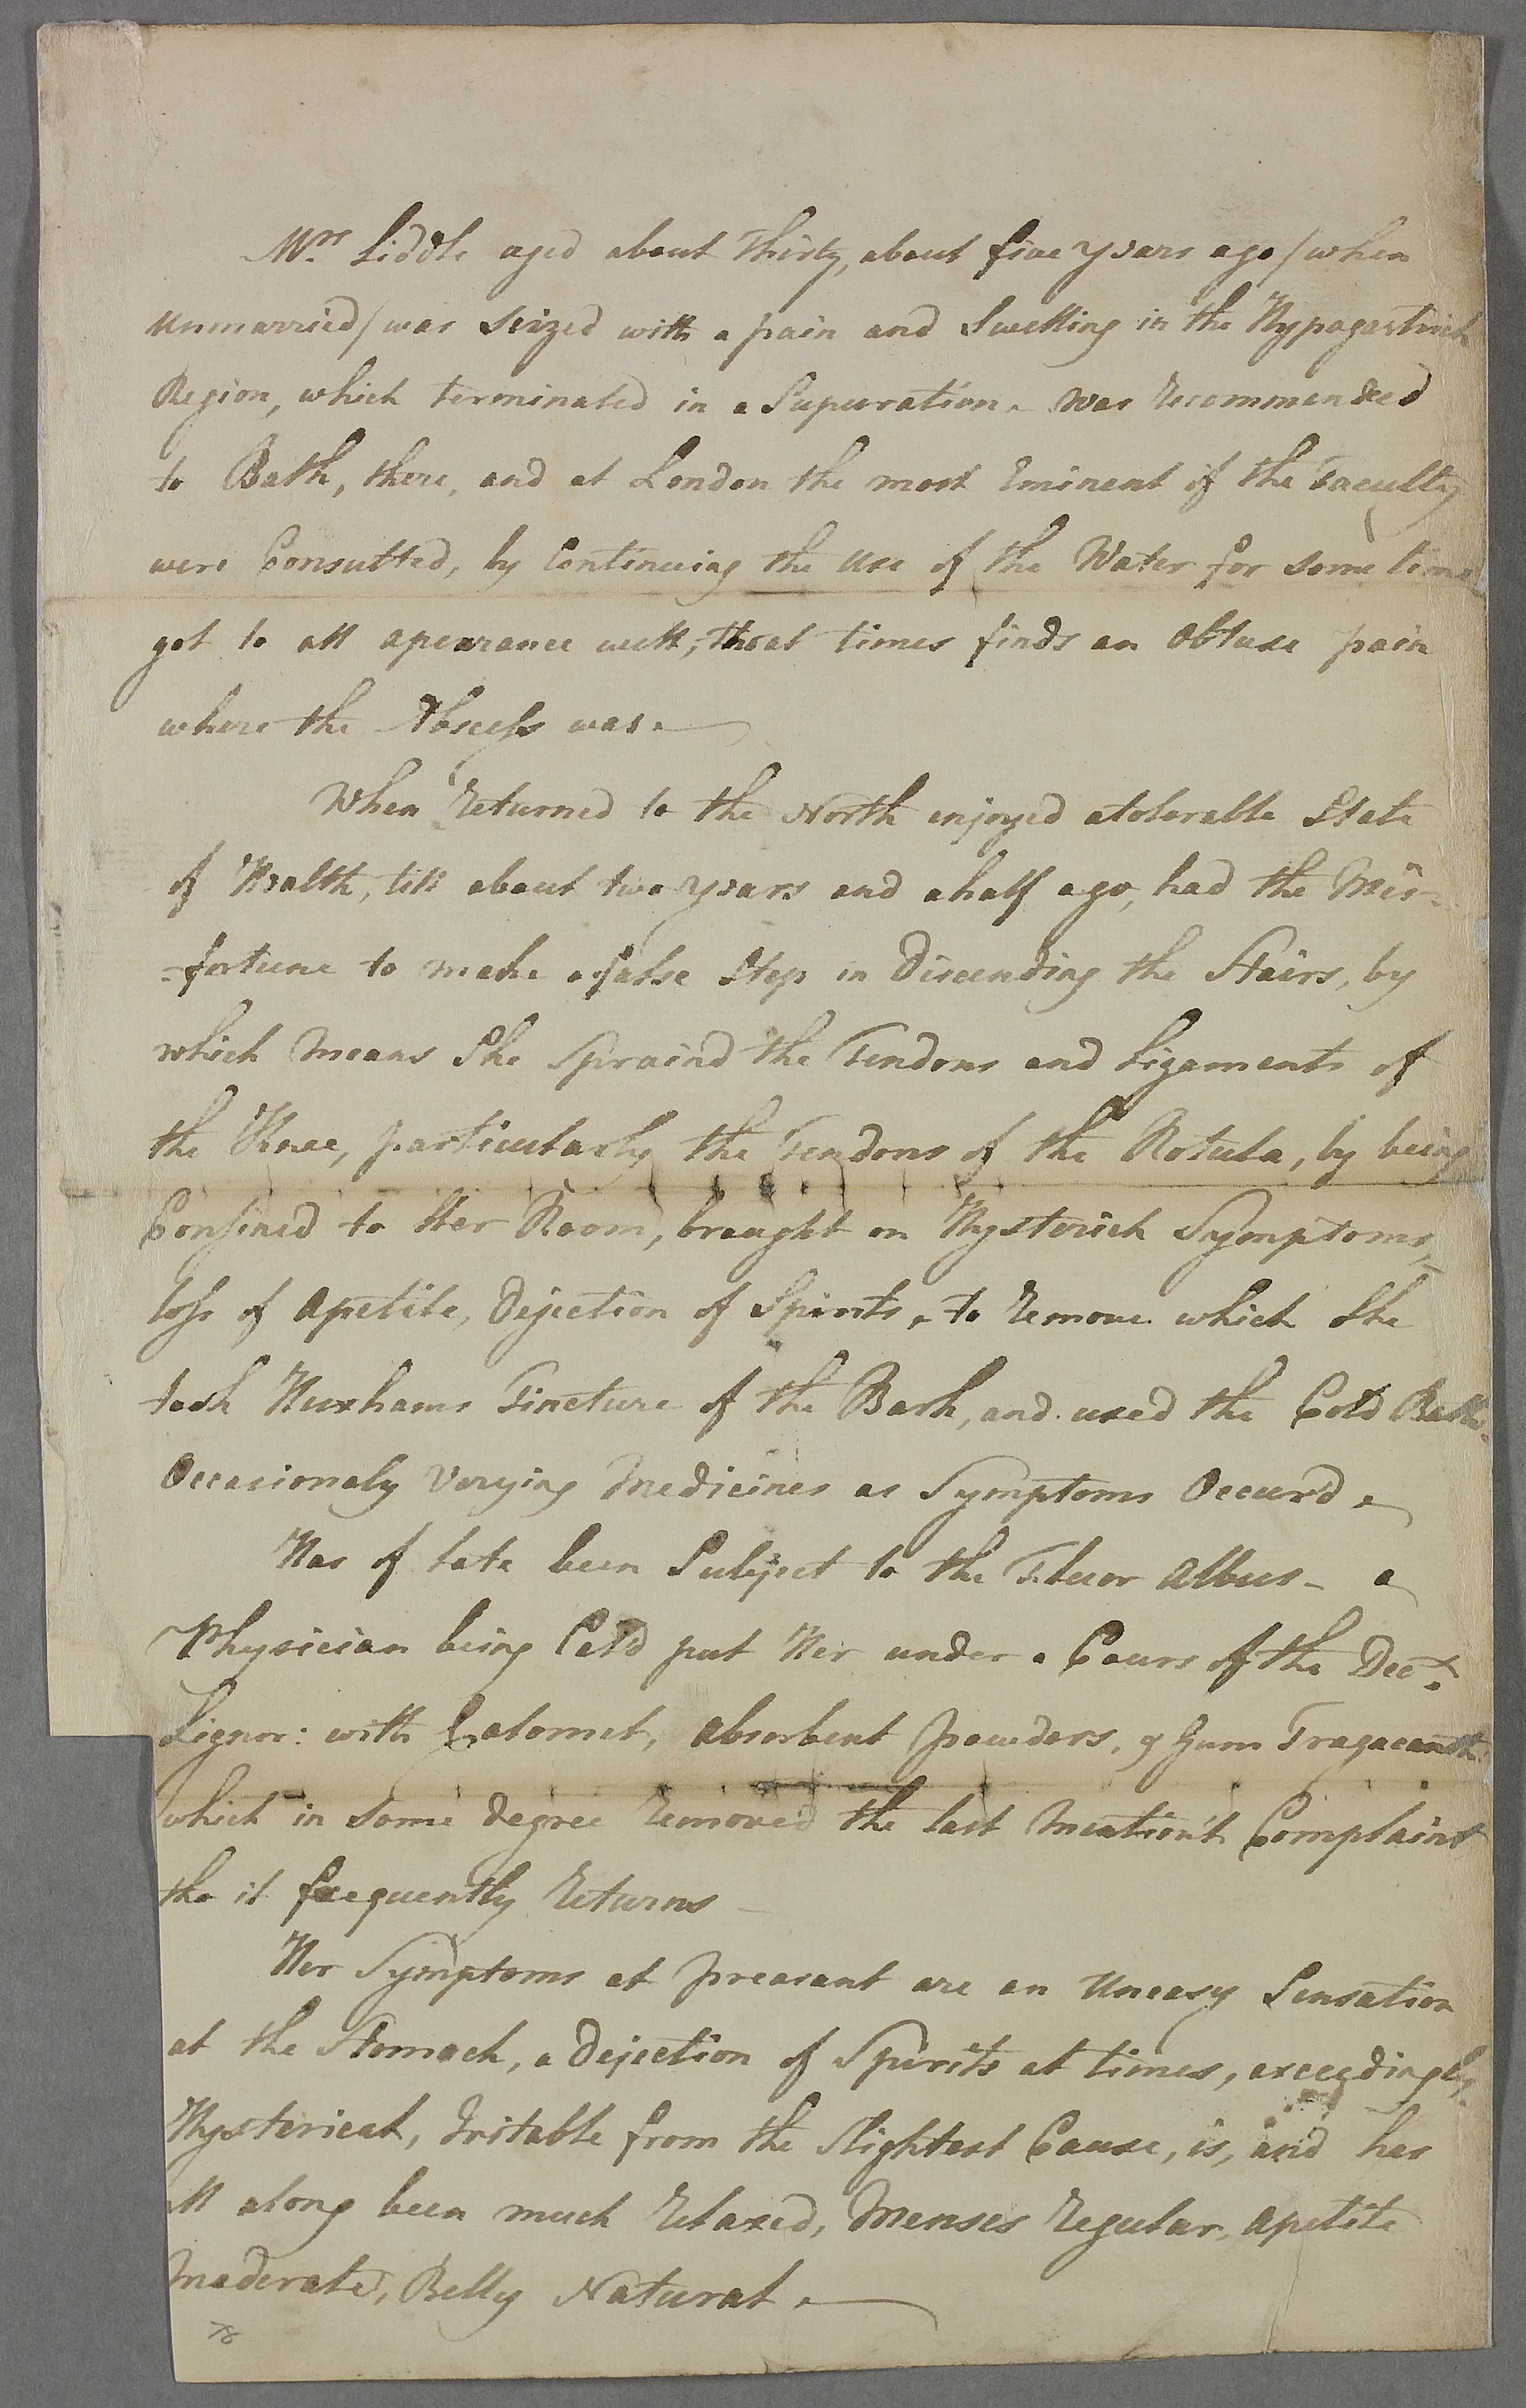 Mrs. Liddle aged about Thirty, about five years ago / when
unmarried / was Seized with a pain and Swelling in the Hypogastrick
Region, which terminated in a Supuration. was Recommended
to Bath, there, and at London the most Eminent of the Faculty
were Consulted, by Continuing the use of the Water for some time
got to all apearance well, tho at times finds an Obtuse pain
where the Abscess was.
When Returned to the North enjoyed a tolerable State
of Health, till about two years and a half ago, had the Mis-
-fortune to make a false Step in Discending the Stairs, by
which means She Spraind the Tendons and Ligaments of
the Knee, particularly the Tendons of the Rotula, by being
Confined to Her Room, brought on Hysterick Symptoms,
loss of Apetite, Dejection of Spirits, to Remove which She
took Huxhams Tincture of the Bark, and used the Cold Bath.
Occasionaly Varying Medicines as Symptoms Occurd.
Has of late been Subject to the Fluor Albus - a
Physician being Calld put Her under a Cours of the Dect.
Lignor: with Calomel, Absorbent powders, & Gum Tragacanth:
which in some degree Removed the last Mention't Complaint
tho it frequently Returns -
Her Symptoms at preasant are an Uneasy Sensation
at the Stomach, a Dejection of Spirits at times, exceedingly
Hysterical, Iritable from the Slightest Cause, is, and has
all along been much Relaxed, Menses Regular, Apetite
Moderate, Belly Natural.
78